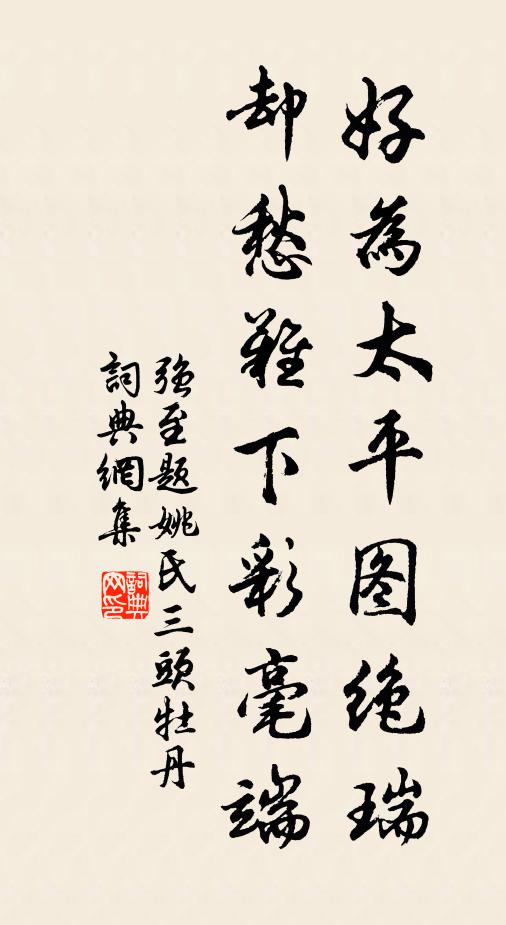 好為太平图绝瑞
却愁難下彩毫端
强至题姚氏三頭牡丹
詞典網集
詞典網印